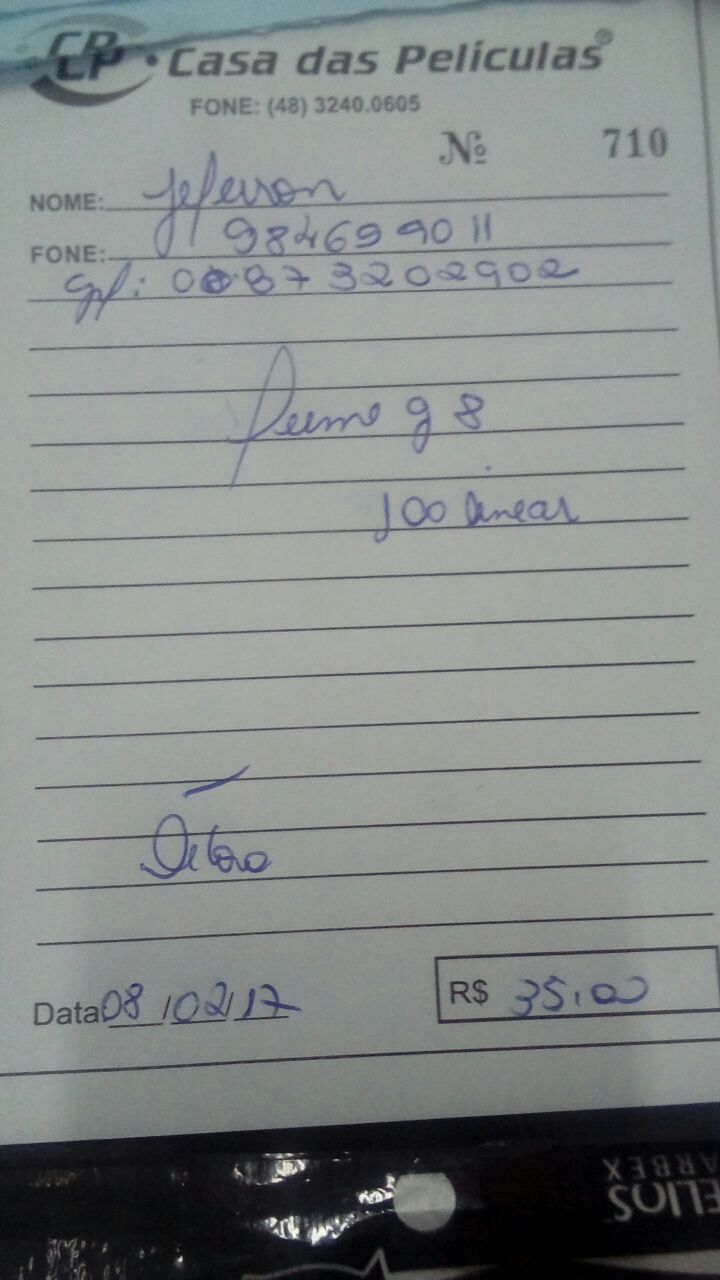 CP CP • Casa das Películas®
FONE: (48) 3240.0605
Nº 710
NOME: Jeferson
FONE: 984699011
cpf: 00873202902
fumo g 8
100 linear
Débito
Data 08/02/17 R$ 35,00